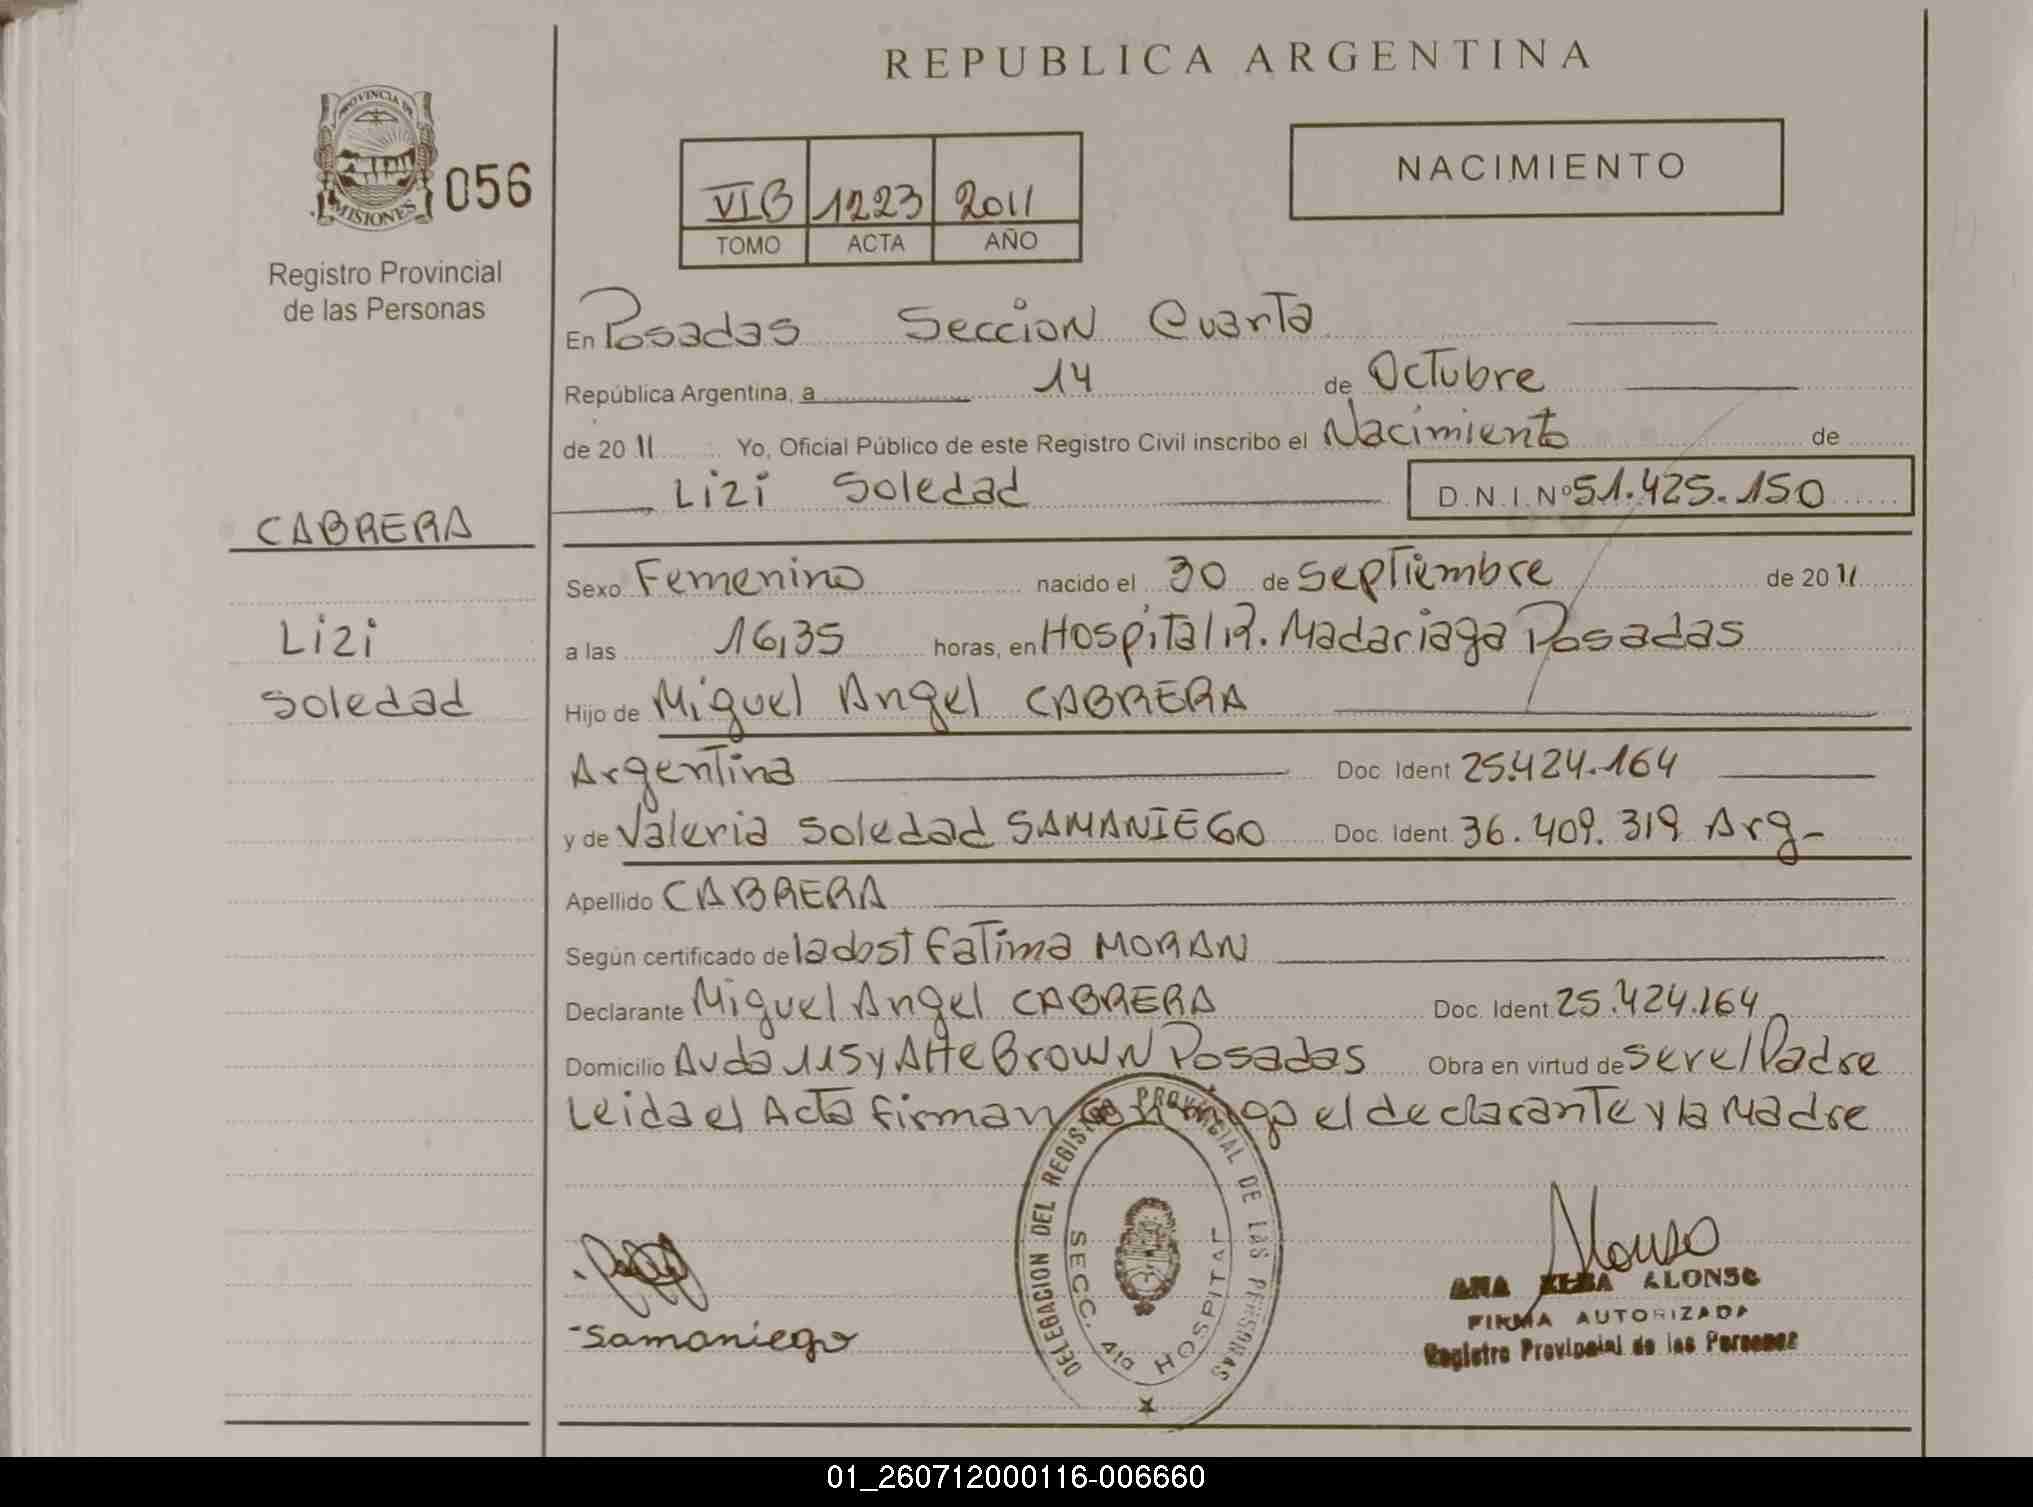 REPUBLICA ARGENTINA
PROVINCIA DE
MISIONES
056
Registro Provincial
de las Personas
NACIMIENTO
VIB 1223 2011
TOMO ACTA AÑO
En Posadas Seccion Cuarta
República Argentina, a 14 de Octubre
de 2011 Yo, Oficial Público de este Registro Civil inscribo el Nacimiento de
Lizi Soledad D.N.I. Nº 51.425.150
CABRERA
Lizi
Soledad
Sexo Femenino nacido el 30 de Septiembre de 2011
a las 16,35 horas, en Hospital R. Madariaga Posadas
Hijo de Miguel Angel CABRERA
Argentina Doc. Ident 25.424.164
y de Valeria Soledad SAMANIEGO Doc. Ident 36.409.319 Arg-
Apellido CABRERA
Según certificado de la obst Fatima MORAN
Declarante Miguel Angel CABRERA Doc. Ident 25.424.164
Domicilio Avda 115 y Alte Brown Posadas Obra en virtud de ser el Padre
Leida el Acta firman conmigo el declarante y la Madre
DELEGACION DEL REGISTRO PROVINCIAL DE LAS PERSONAS
SECC. 4ta HOSPITAL
Samaniego
Alonso
ANA ELBA ALONSO
FIRMA AUTORIZADA
Registro Provincial de las Personas
01_260712000116-006660